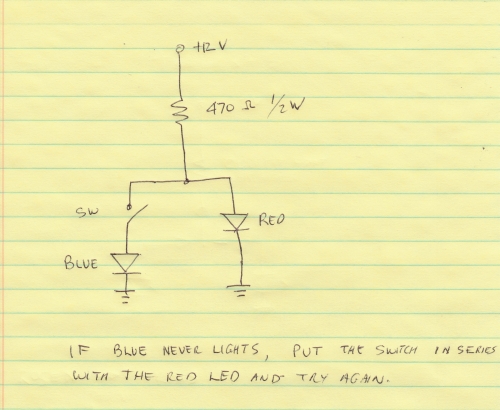 +12V
470 Ω 1/2W
SW
RED
BLUE
IF BLUE NEVER LIGHTS, PUT THE SWITCH IN SERIES
WITH THE RED LED AND TRY AGAIN.